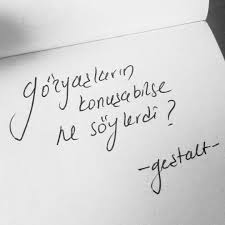 gözyaşların
konuşabilse
ne söylerdi?
-gestalt-